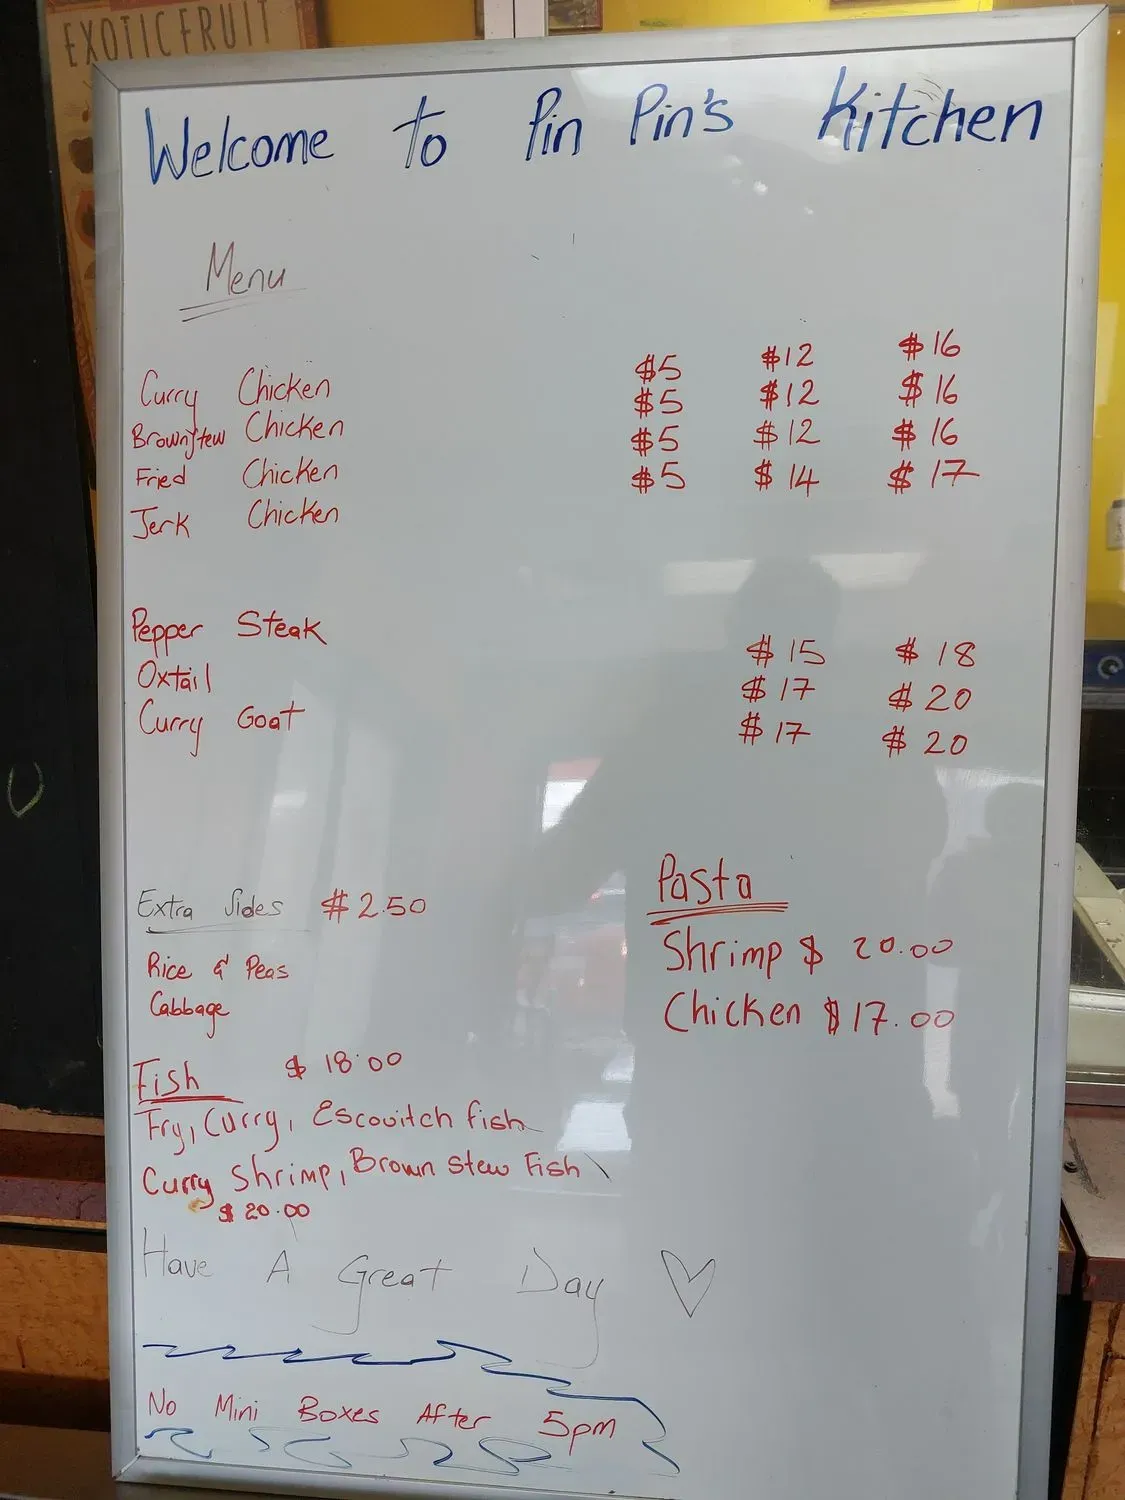 EXOTIC FRUIT
Welcome to Pin Pin's Kitchen
Menu
Curry Chicken $5 $12 $16
Brownstew Chicken $5 $12 $16
Fried Chicken $5 $12 $16
Jerk Chicken $5 $14 $17
Pepper Steak $15 $18
Oxtail $17 $20
Curry Goat $17 $20
Extra Sides $2.50
Rice & Peas
Cabbage
Pasta
Shrimp $ 20.00
Chicken $17.00
Fish $ 18.00
Fry, Curry, Escovitch fish
Curry Shrimp, Brown stew Fish
$ 20.00
Have A Great Day
No Mini Boxes After 5pm